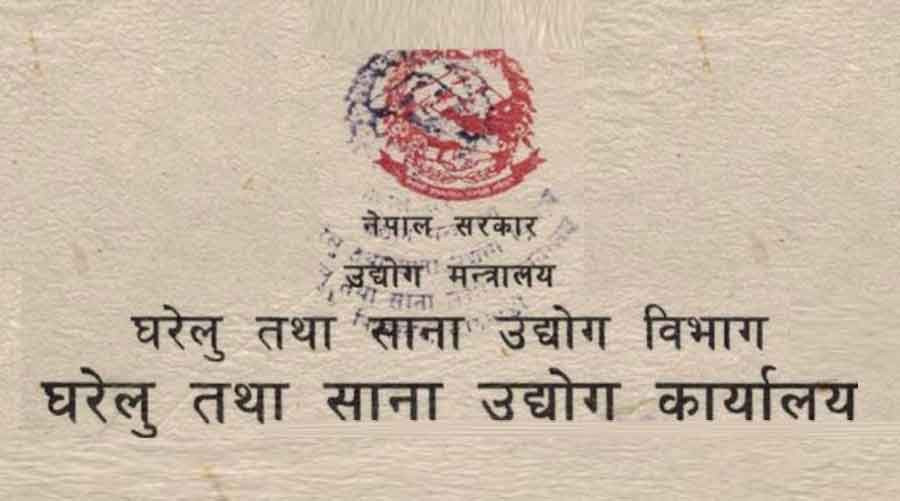 नेपाल सरकार
उद्योग मन्त्रालय
घरेलु तथा साना उद्योग विभाग
घरेलु तथा साना उद्योग कार्यालय